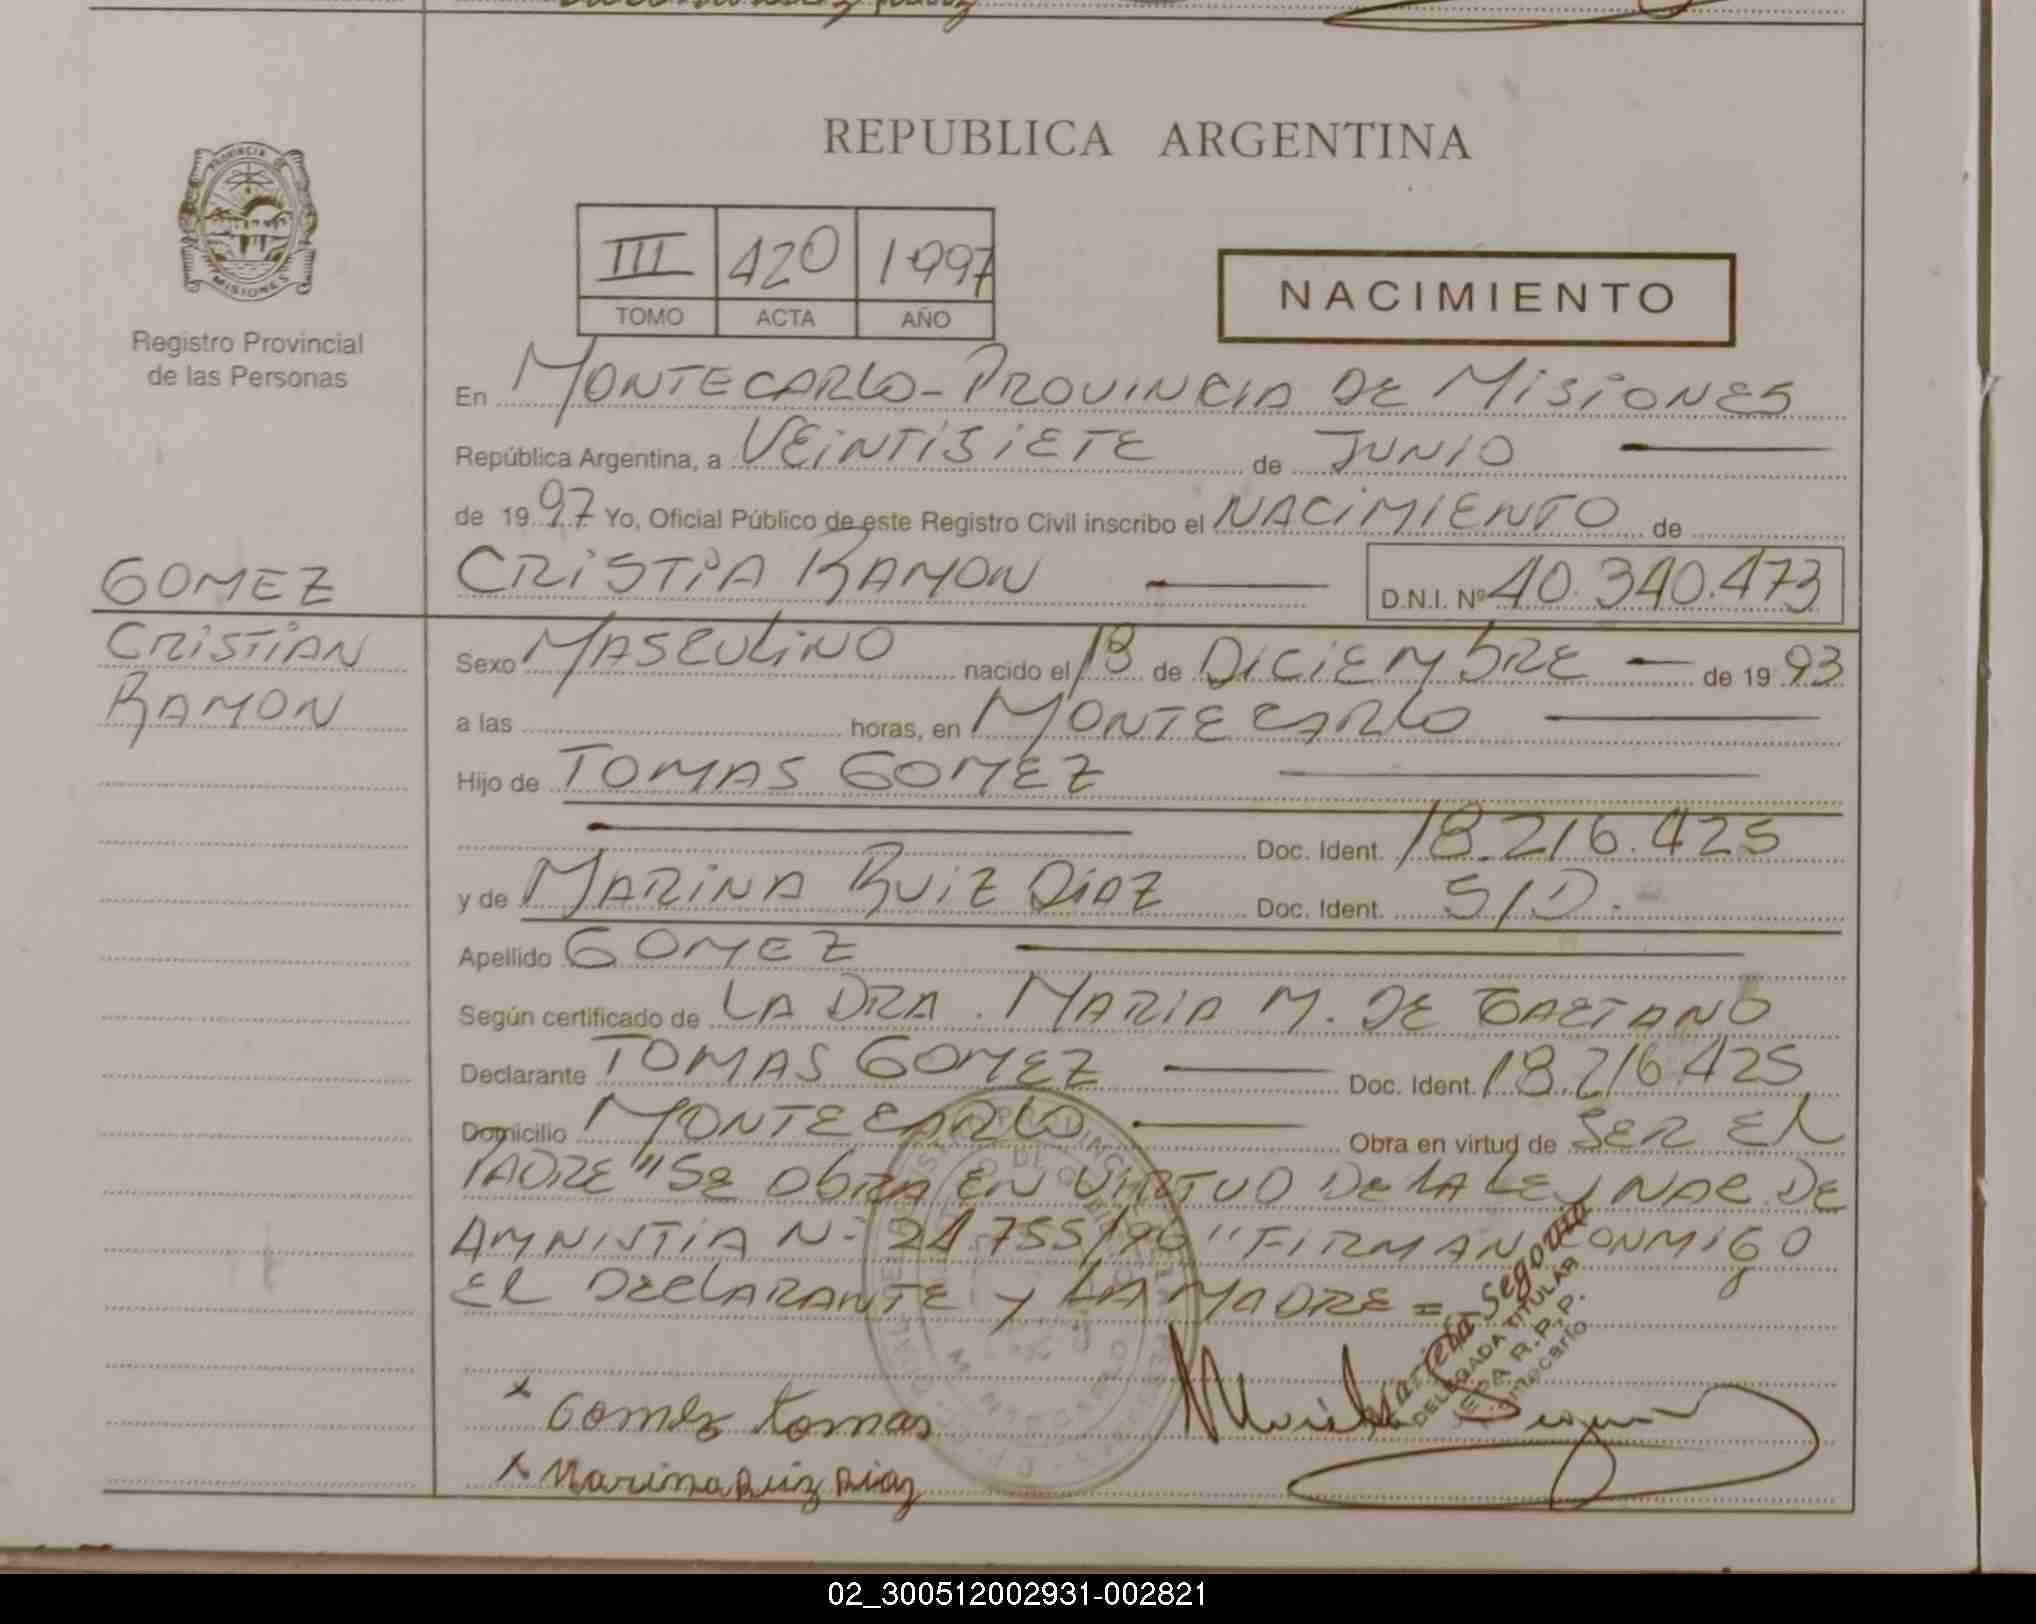 PROVINCIA DE
MISIONES
Registro Provincial
de las Personas
REPUBLICA ARGENTINA
III 420 1997
TOMO ACTA AÑO
NACIMIENTO
En MONTECARLO - PROVINCIA DE MISIONES
República Argentina, a VEINTISIETE de JUNIO
de 1997 Yo, Oficial Público de este Registro Civil inscribo el NACIMIENTO de
GOMEZ
CRISTIAN
RAMON
CRISTIA RAMON D.N.I. Nº 40.340.473
Sexo MASCULINO nacido el 13 de DICIEMBRE de 1993
a las horas, en MONTECARLO
Hijo de TOMAS GOMEZ
Doc. Ident. 18.216.425
y de MARINA RUIZ DIAZ Doc. Ident. S/D.
Apellido GOMEZ
Según certificado de LA DRA. MARIA M. DE GAETANO
Declarante TOMAS GOMEZ Doc. Ident. 18.216.425
Domicilio MONTECARLO Obra en virtud de SER EL
PADRE "SE OBRA EN VIRTUD DE LA LEY NAC. DE
AMNISTIA N: 24.755/96" FIRMAN CONMIGO
EL DECLARANTE Y LA MADRE =
Segovia
DELEGADA TITULAR
R.P.P.
Montecarlo
x Gomez tomas
x Marina Ruiz Diaz
02_300512002931-002821